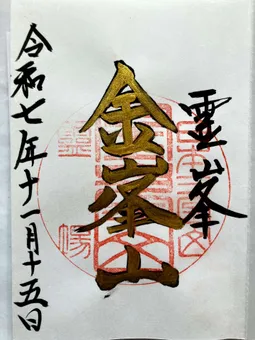 霊峯
金峯山
令和七年十一月十五日